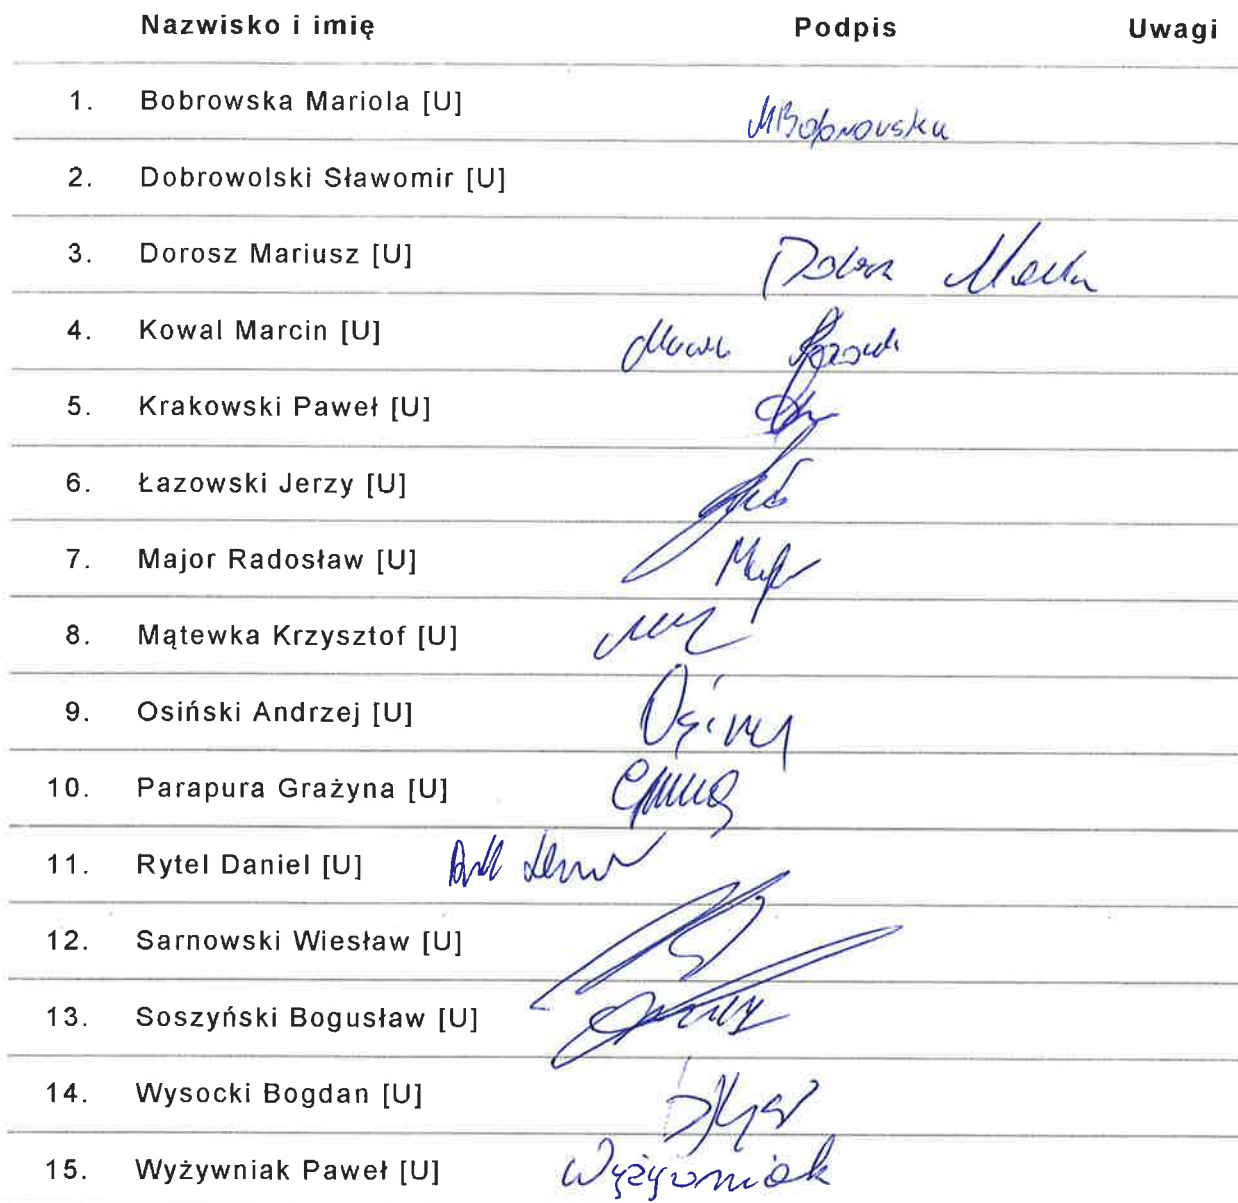 Nazwisko i imię Podpis Uwagi
1. Bobrowska Mariola [U] MBobrowska
2. Dobrowolski Sławomir [U]
3. Dorosz Mariusz [U]
4. Kowal Marcin [U]
5. Krakowski Paweł [U]
6. Łazowski Jerzy [U]
7. Major Radosław [U]
8. Mątewka Krzysztof [U]
9. Osiński Andrzej [U]
10. Parapura Grażyna [U]
11. Rytel Daniel [U]
12. Sarnowski Wiesław [U]
13. Soszyński Bogusław [U]
14. Wysocki Bogdan [U]
15. Wyżywniak Paweł [U] Wyżywniak